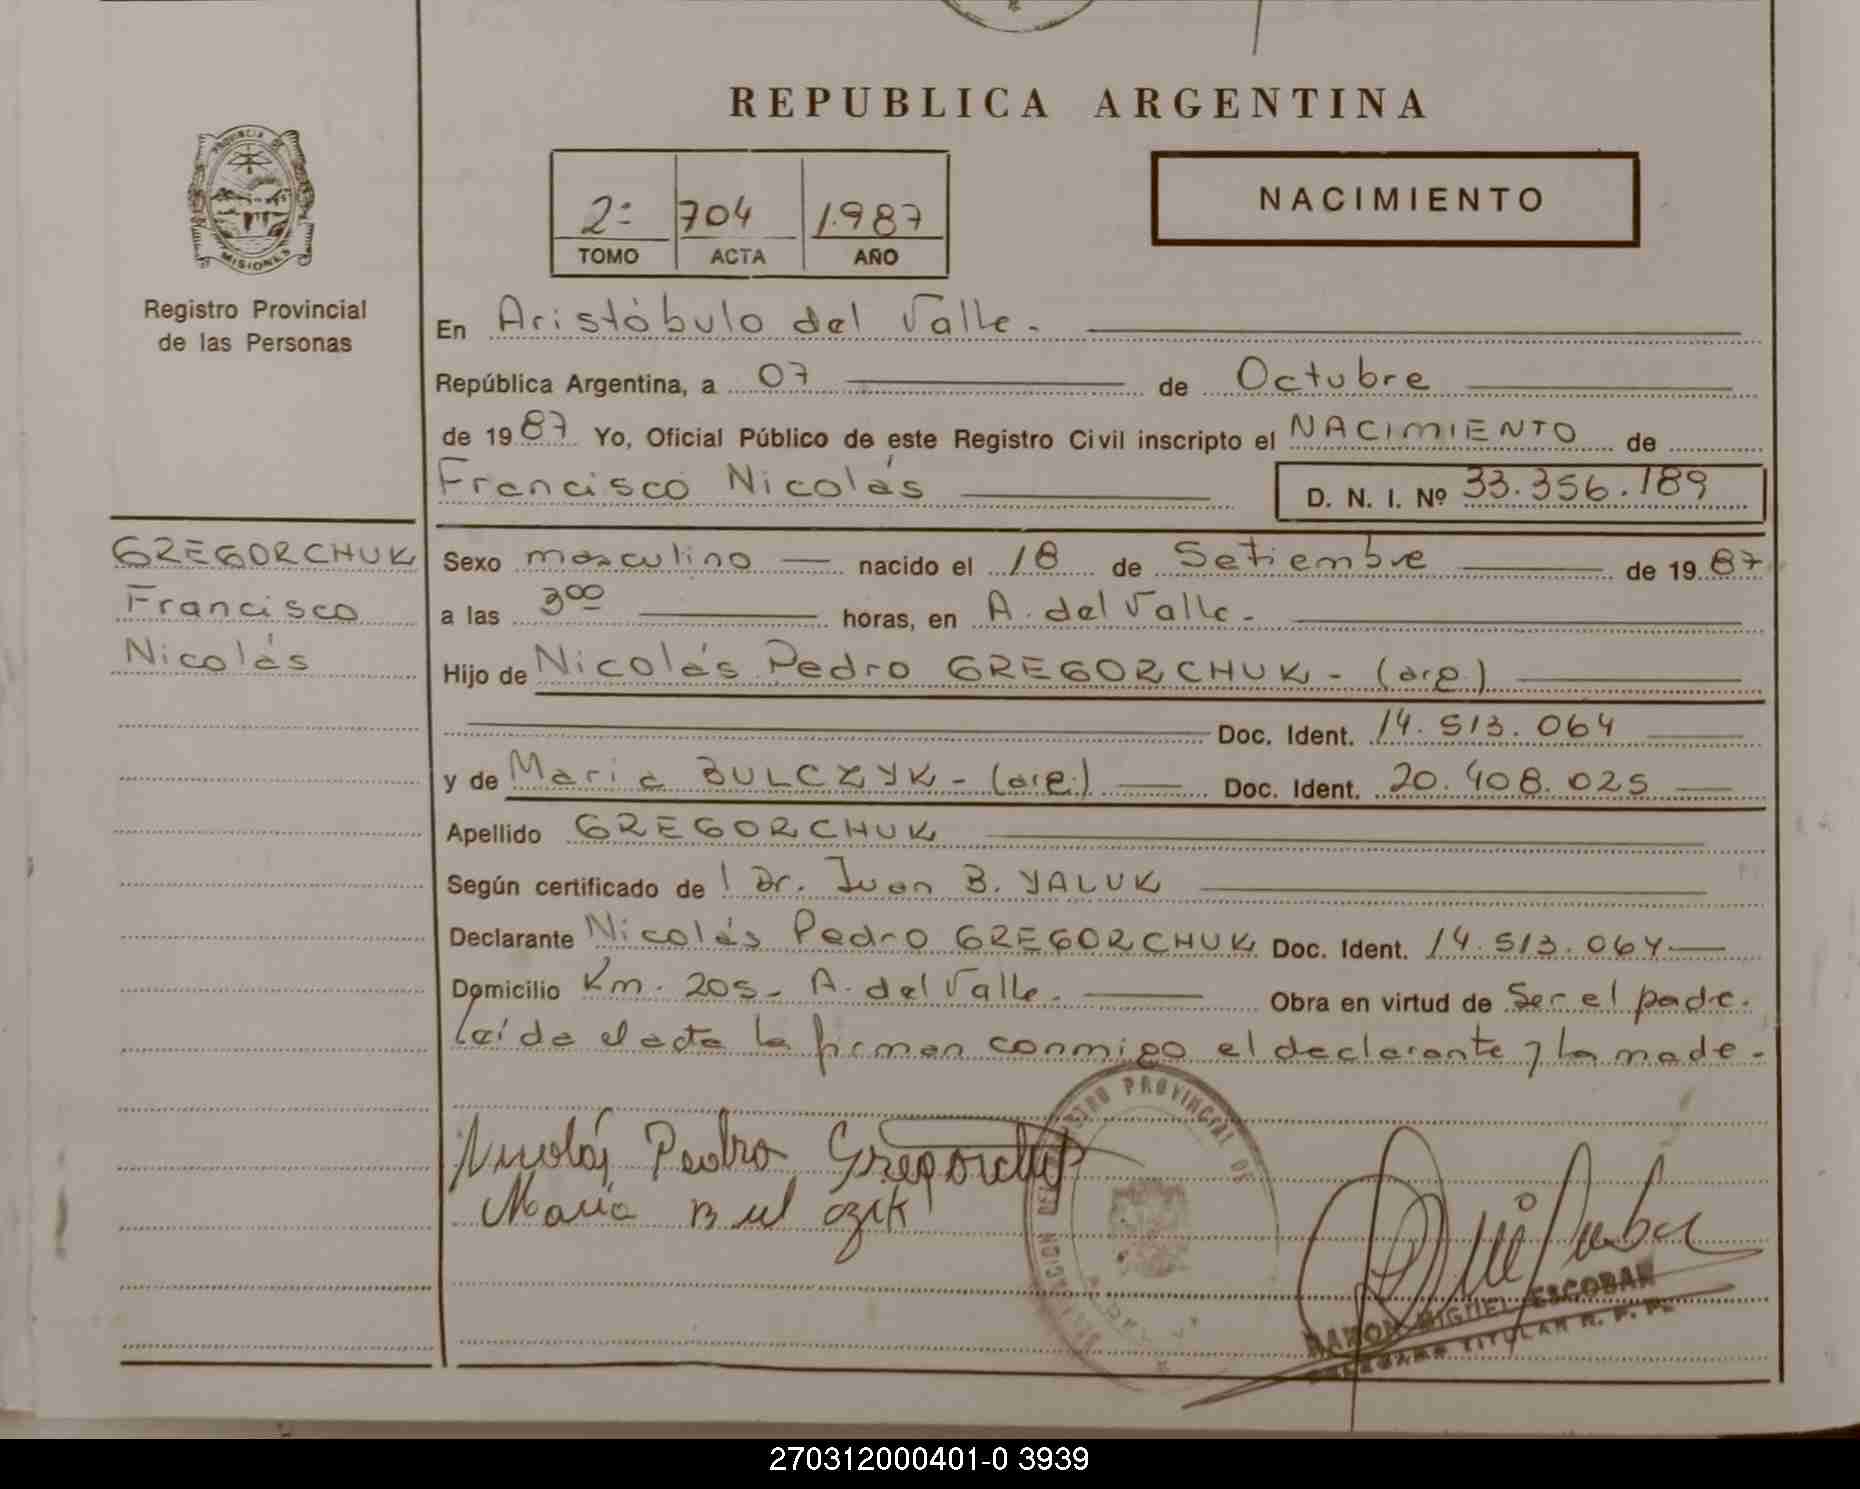 REPUBLICA ARGENTINA
PROVINCIA DE
MISIONES
Registro Provincial
de las Personas
2º 704 1.987
TOMO ACTA AÑO
NACIMIENTO
En Aristóbulo del Valle.
República Argentina, a 07 de Octubre
de 1987 Yo, Oficial Público de este Registro Civil inscripto el NACIMIENTO de
Francisco Nicolás D. N. I. Nº 33.356.189
GREGORCHUK
Francisco
Nicolás
Sexo masculino nacido el 18 de Setiembre de 1987
a las 3⁰⁰ horas, en A. del Valle.
Hijo de Nicolás Pedro GREGORCHUK - (arg.)
Doc. Ident. 14.513.064
y de Maria BULCZYK - (arg.) Doc. Ident. 20.408.025
Apellido GREGORCHUK
Según certificado de Dr. Juan B. YALUK
Declarante Nicolás Pedro GREGORCHUK Doc. Ident. 14.513.064
Domicilio Km. 205 - A. del Valle. Obra en virtud de Ser el padre.
Leída el acta la firman conmigo el declarante y la madre.
Nicolás Pedro Gregorchuk
Maria Bulczik
PROVINCIAL DE
RAMON MIGUEL ESCOBAR
TITULAR R. P. P.
270312000401-0 3939